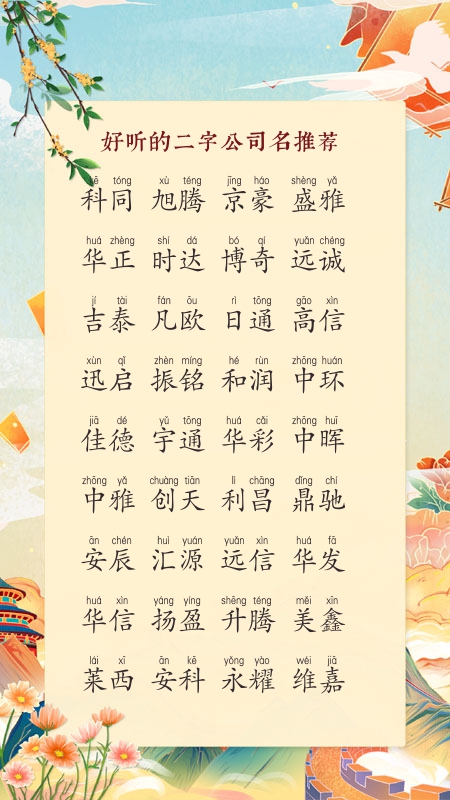 好听的二字公司名推荐
kē tóng xù téng jīng háo shèng yǎ
科同 旭腾 京豪 盛雅
huá zhèng shí dá bó qí yuǎn chéng
华正 时达 博奇 远诚
jí tài fán ōu rì tōng gāo xìn
吉泰 凡欧 日通 高信
xùn qǐ zhèn míng hé rùn zhōng huán
迅启 振铭 和润 中环
jiā dé yǔ tōng huá cǎi zhōng huī
佳德 宇通 华彩 中晖
zhōng yǎ chuàng tiān lì chāng dǐng chí
中雅 创天 利昌 鼎驰
ān chén huì yuán yuǎn xìn huá fā
安辰 汇源 远信 华发
huá xìn yáng yíng shēng téng měi xīn
华信 扬盈 升腾 美鑫
lái xī ān kē yǒng yào wéi jiā
莱西 安科 永耀 维嘉